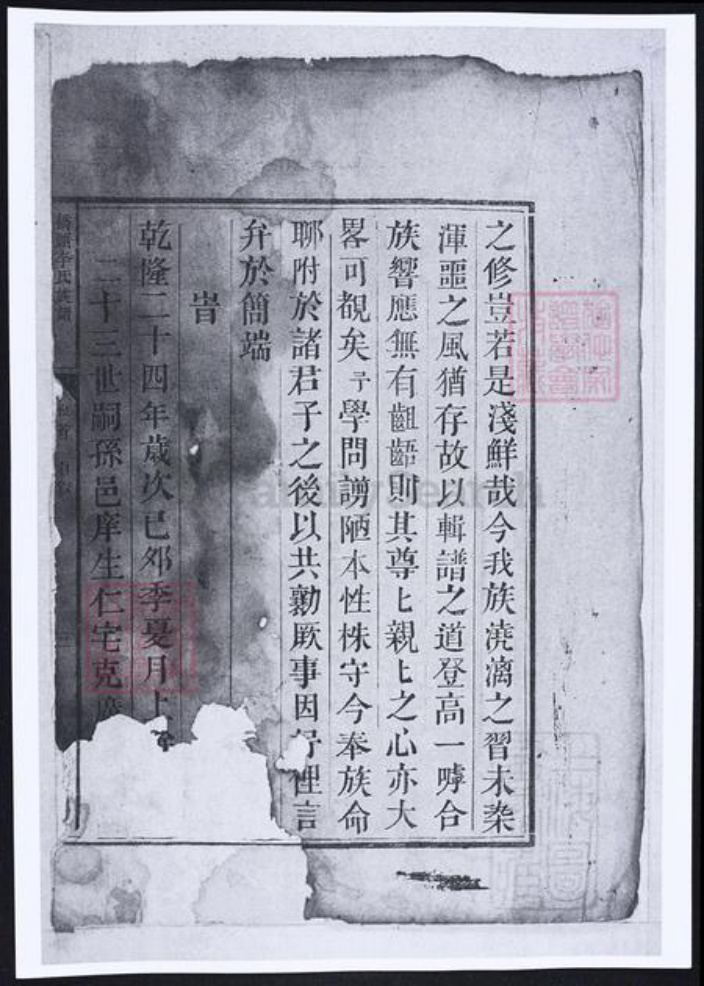 之修豈若是淺鮮哉今我族澆漓之習未染
渾噩之風猶存故以輯譜之道登高一嘑合
族響應無有齟齬則其尊〻親〻之心亦大
畧可覩矣予學問謭陋本性株守今奉族命
聊附於諸君子之後以共勷厥事因紓俚言
弁於簡端
旹
乾隆二十四年歲次已夘季夏月上
二十三世嗣孫邑庠生仁宅克
李氏族譜